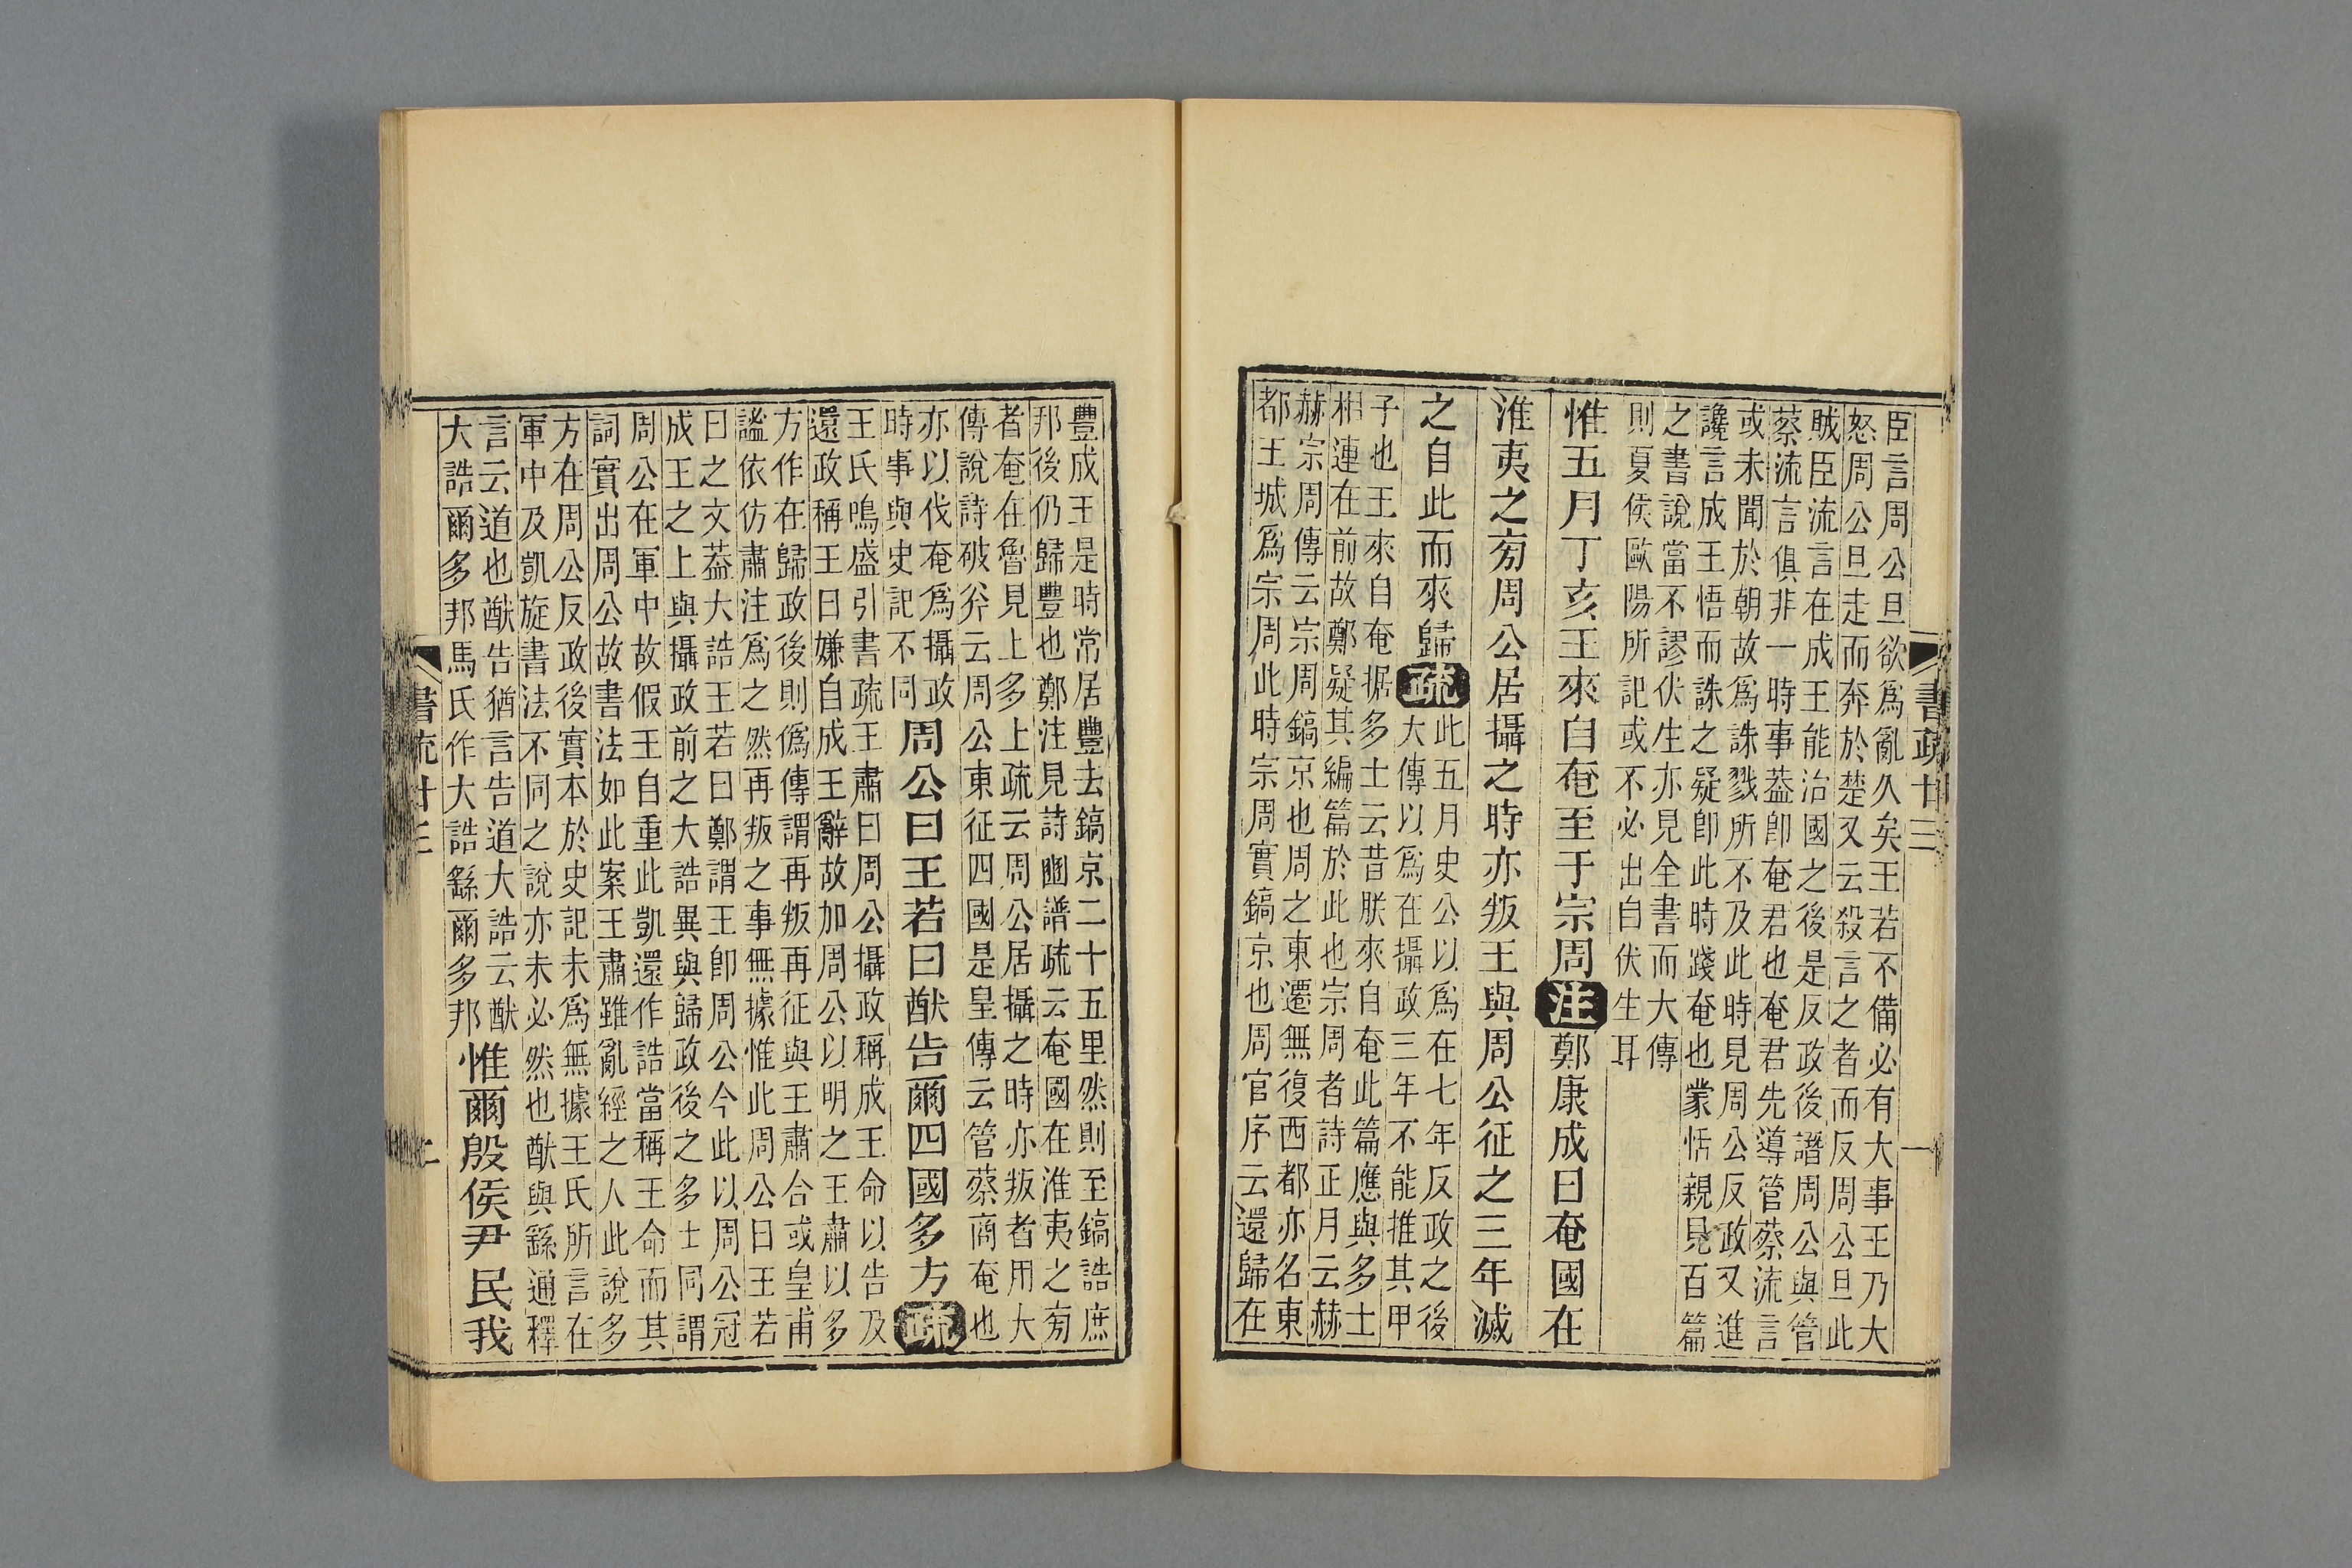 書疏廿三
一
臣言周公旦欲爲亂久矣王若不備必有大事王乃大
怒周公旦走而奔於楚又云殺言之者而反周公旦此
賊臣流言在成王能治國之後是反政後譖周公與管
蔡流言俱非一時事葢卽奄君也奄君先導管蔡流言
或未聞於朝故爲誅戮所不及此時見周公反政又進
讒言成王悟而誅之疑卽此時踐奄也蒙恬親見百篇
之書說當不謬伏生亦見全書而大傳
則夏侯歐陽所記或不必出自伏生耳
惟五月丁亥王來自奄至于宗周注鄭康成曰奄國在
淮夷之㫄周公居攝之時亦叛王與周公征之三年滅
之自此而來歸疏
此五月史公以爲在七年反政之後
大傳以爲在攝政三年不能推其甲
子也王來自奄据多士云昔朕來自奄此篇應與多士
相連在前故鄭疑其編篇於此也宗周者詩正月云赫
赫宗周傳云宗周鎬京也周之東遷無復西都亦名東
都王城爲宗周此時宗周實鎬京也周官序云還歸在
豐成王是時常居豐去鎬京二十五里然則至鎬誥庶
邦後仍歸豐也鄭注見詩豳譜疏云奄國在淮夷之㫄
者奄在魯見上多上疏云周公居攝之時亦叛者用大
傳說詩破斧云周公東征四國是皇傳云管蔡商奄也
亦以伐奄爲攝政
時事與史記不同
周公曰王若曰猷告爾四國多方疏
王氏鳴盛引書疏王肅曰周公攝政稱成王命以告及
還政稱王曰嫌自成王辭故加周公以明之王肅以多
方作在歸政後則僞傳謂再叛再征與王肅合或皇甫
謐依仿肅注爲之然再叛之事無據惟此周公曰王若
曰之文葢大誥王若曰鄭謂王卽周公今此以周公冠
成王之上與攝政前之大誥異與歸政後之多士同謂
周公在軍中故假王自重此凱還作誥當稱王命而其
詞實出周公故書法如此案王肅雖亂經之人此說多
方在周公反政後實本於史記未爲無據王氏所言在
軍中及凱旋書法不同之說亦未必然也猷與繇通釋
言云道也猷告猶言告道大誥云猷
大誥爾多邦馬氏作大誥繇爾多邦
惟爾殷侯尹民我